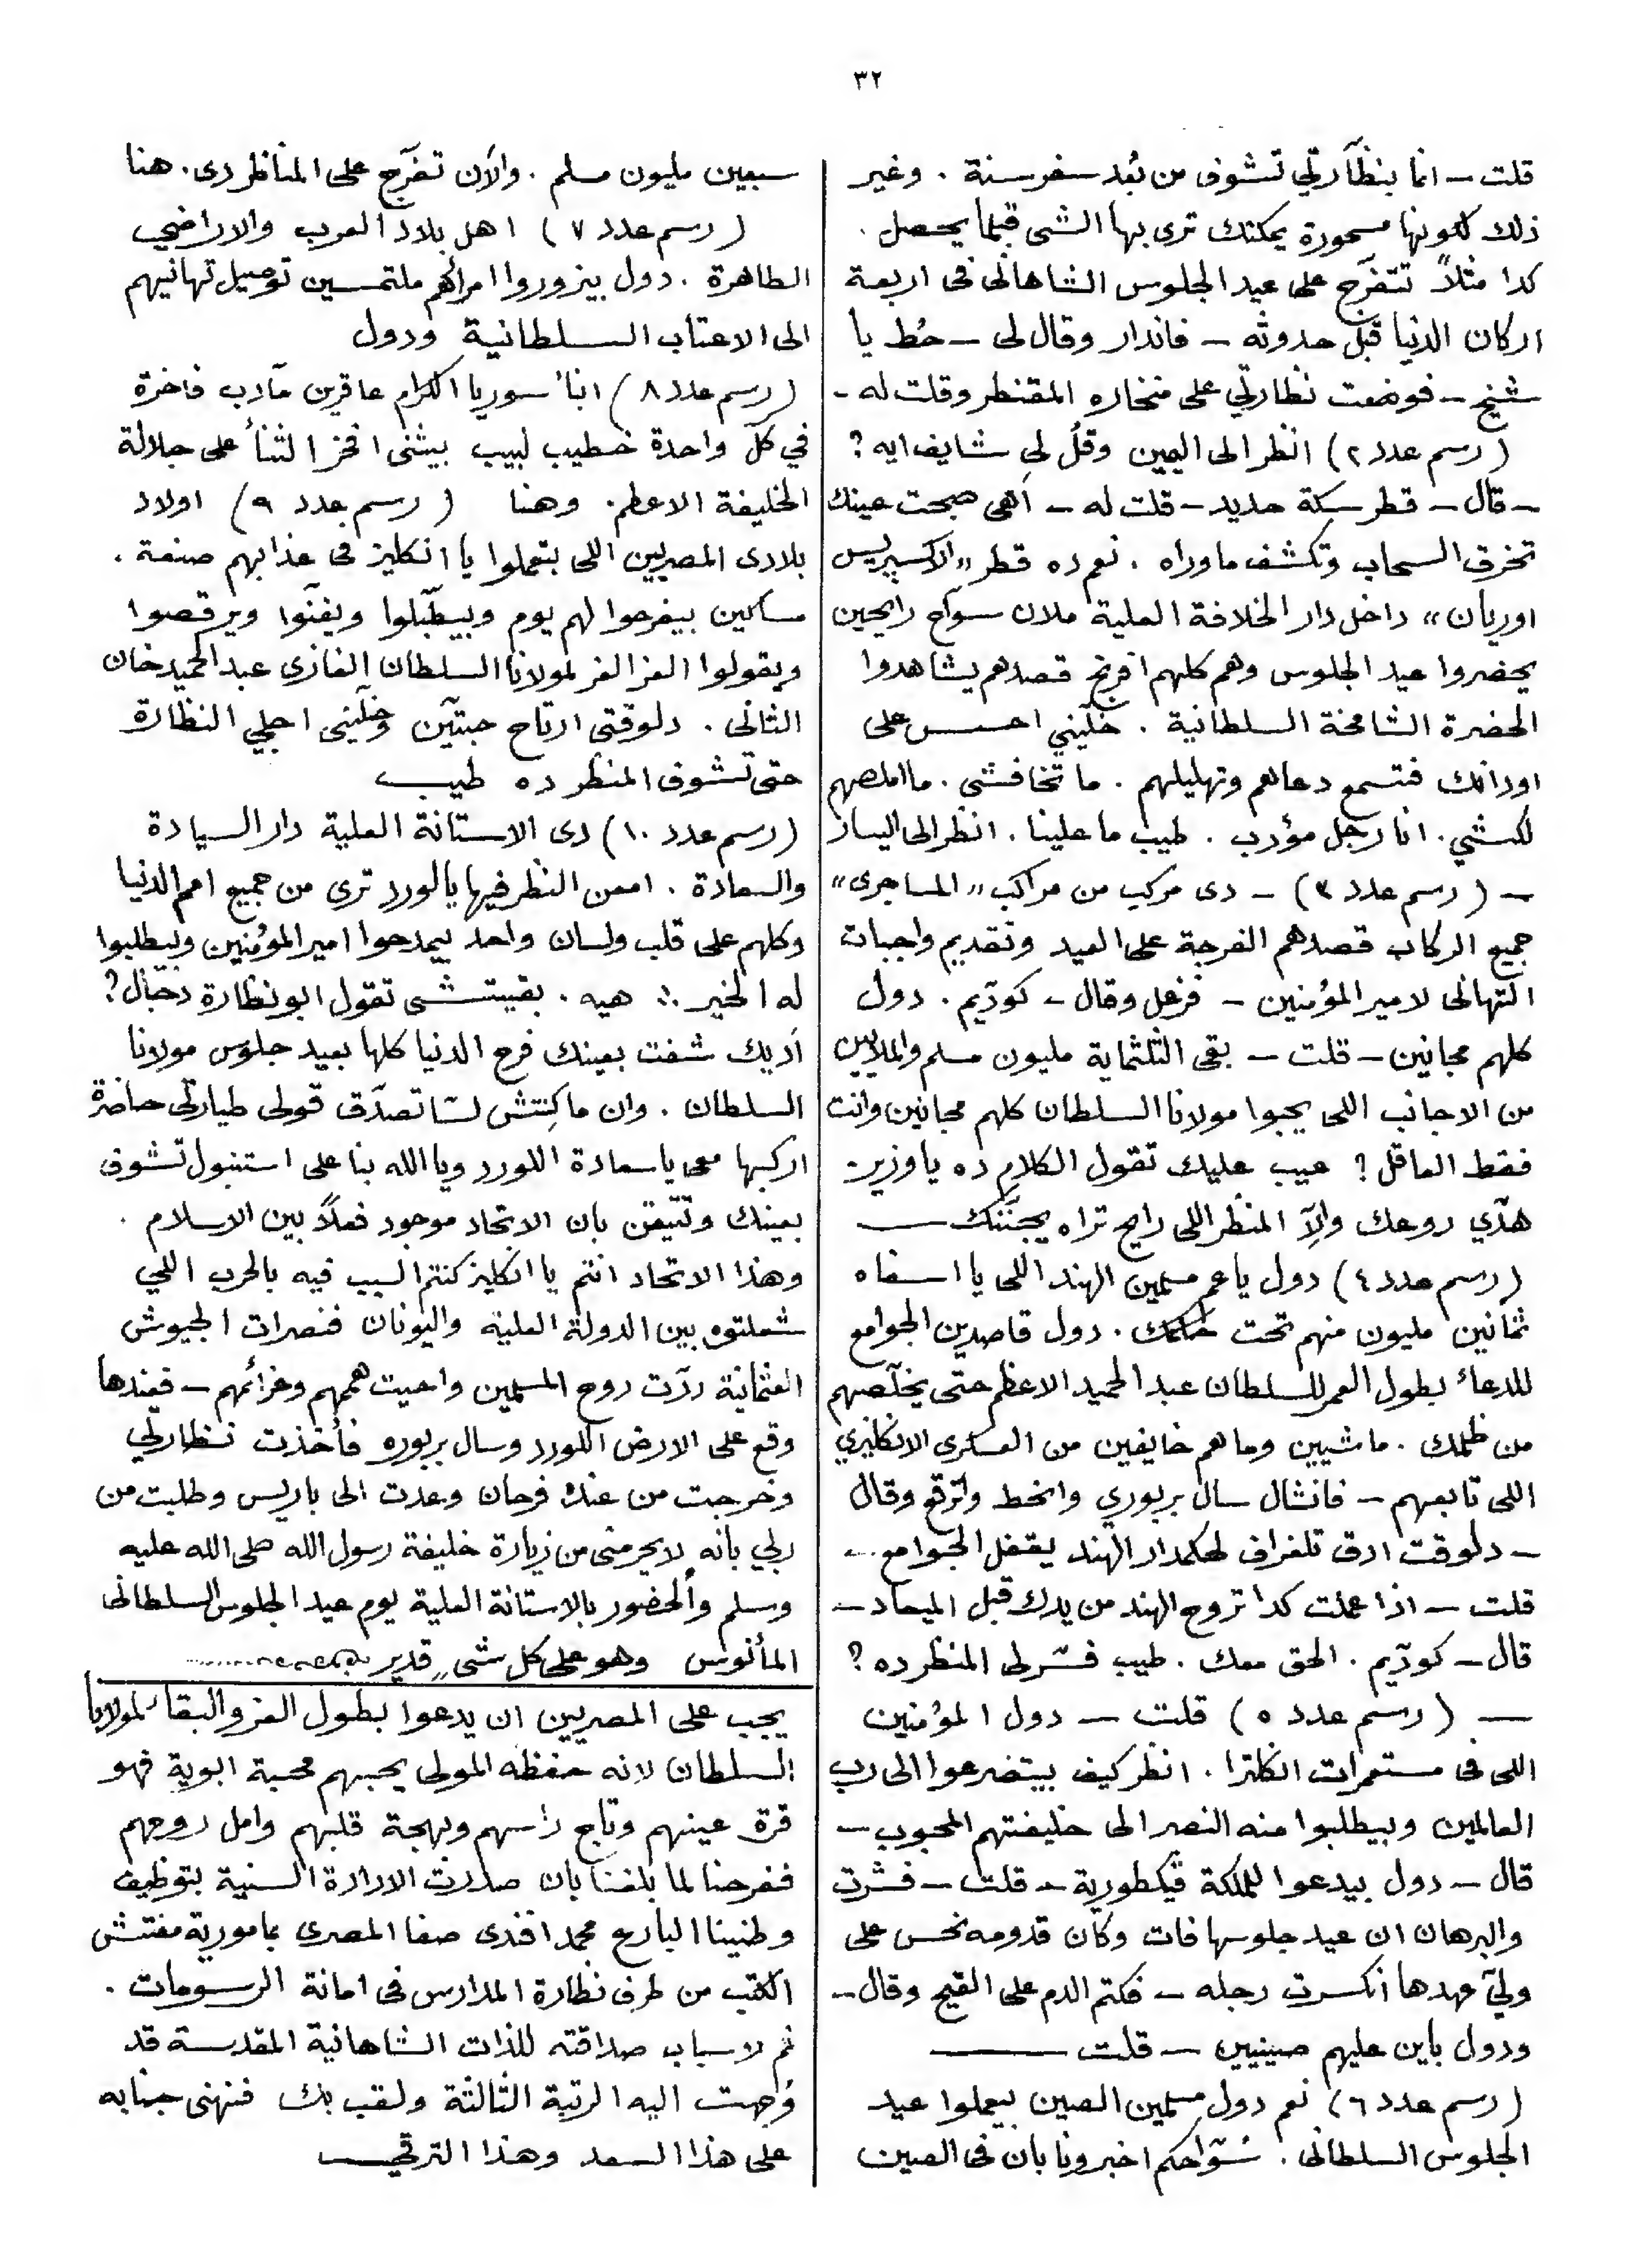 ٣٢
قلت — انا بنظّارتي تشوف من بُعد سفر سنة . وغير
ذلك لكونها مسحورة يمكنك ترى بها الشى قبلما يحصل .
كدا مثلاً تتفرّج على عيد الجلوس الشاهانى فى اربعة
اركان الدنيا قبل حدوثه — فاندار وقال لى — حُط يا
شيخ — فوضعت نظارتي على منخاره المقنطر وقلت له —
(رسم عدد ٢) انظر الى اليمين وقُل لى شايف ايه ؟
— قال — قطر سكة حديد — قلت له — اهى صبحت عينك
تخرق السحاب وتكشف ماوراه . نعم ده قطر «الاكسپريس
اوريان» داخل دار الخلافة العلية ملان سوّاح رايحين
يحضروا عيد الجلوس وهم كلهم افرنج قصدهم يشاهدوا
الحضرة الشامخة السلطانية . خلّيني احسس على
اودانك فتسمع دعاهم وتهليلهم . ما تخافشى . ما املصهم
لكشي . انا رجل مؤدب . طيب ما علينا . انظر الى اليسار
— (رسم عدد ٣) — دى مركب من مراكب «المساجرى»
جميع الركاب قصدهم الفرجة على العيد وتقديم واجبات
التهانى لامير المؤمنين — فزعل وقال — كودّيم . دول
كلهم مجانين — قلت — بقى الثلثماية مليون مسلم والملايين
من الاجانب اللى يحبوا مولانا السلطان كلهم مجانين وانت
فقط العاقل ؟ عيب عليك تقول الكلام ده يا وزير —
هدّي روعك والّا المنظر اللى رايح تراه يجننك —
(رسم عدد ٤) دول يا عم مسلمين الهند اللى يا اسفاه
ثمانين مليون منهم تحت حكمك . دول قاصدين الجوامع
للدعاء بطول العمر للسلطان عبد الحميد الاعظم حتى يخلّصهم
من ظلمك . ماشيين وما هم خايفين من العسكرى الانكليزي
اللى تابعهم — فانشال سال بربوري وانخط واترقع وقال
— دلوقت ادق تلغراف لحكمدار الهند يقفل الجوامع —
قلت — اذا عملت كدا تروح الهند من يدك قبل الميعاد —
قال — كودّيم . الحق معك . طيب فسّر لى المنظر ده ؟
— (رسم عدد ٥) قلت — دول المؤمنين
اللى فى مستعمرات انكلترا . انظر كيف بيتضرعوا الى رب
العالمين وبيطلبوا منه النصر الى خليفتهم المحبوب —
قال — دول بيدعوا للملكة ڤيكطورية — قلت — فشرت
والبرهان ان عيد جلوسها فات وكان قدومه نحس على
وليّ عهدها انكسرت رجله — فكتم الدم على القيح وقال —
ودول باين عليهم صينيين — قلت —
(رسم عدد ٦) نعم دول مسلمين الصين بيعملوا عيد
الجلوس السلطانى . سُوّاحكم اخبرونا بان فى الصين
سبعين مليون مسلم . والآن تفرّج على المناظر دى . هنا
(رسم عدد ٧) اهل بلاد العرب والاراضي
الطاهرة . دول بيزوروا امرائهم ملتمسين توصيل تهانيهم
الى الاعتاب السلطانية ودول
(رسم عدد ٨) ابناء سوريا الكرام عاقدين مآدب فاخرة
في كلّ واحدة خطيب لبيب بيثنى افخر الثناء على جلالة
الخليفة الاعظم . وهنا (رسم عدد ٩) اولاد
بلادى المصريين اللى بتعملوا يا انكليز فى عذابهم صنعة .
مساكين بيفرحوا لهم يوم وبيطبّلوا ويغنّوا ويرقصوا
ويقولوا العز العز لمولانا السلطان الغازى عبد الحميد خان
الثانى . دلوقتى ارتاح حبتين وخلّينى اجلي النظارة
حتى تشوف المنظر ده طيب
(رسم عدد ١٠) دى الاستانة العلية دار السيادة
والسعادة . امعن النظر فيها يا لورد ترى من جميع امم الدنيا
وكلهم على قلب ولسان واحد بيمدحوا امير المؤمنين وبيطلبوا
له الخير ؞ هيه . بقيتشى تقول ابو نظارة دجّال ؟
أديك شفت بعينك فرح الدنيا كلها بعيد جلوس مولانا
السلطان . وان ما كِنتش لسّا تصدّق قولى طيارتى حاضرة
اركبها معى يا سعادة اللورد ويا الله بنا على استنبول تشوف
بعينك وتتيقن بان الاتحاد موجود فعلاً بين الاسلام .
وهذا الاتحاد انتم يا انكليز كنتم السبب فيه بالحرب اللي
شعلتوه بين الدولة العلية واليونان فنصرات الجيوش
العثمانية ردّت روح المسلمين واحيت هممهم وعزائمهم — فعندها
وقع على الارض اللورد وسال بربوره فأخذت نظارتي
وخرجت من عنده فرحان وعدت الى باريس وطلبت من
ربي بأنه لا يحرمنى من زيارة خليفة رسول الله صلى الله عليه
وسلم وألحضور بالاستانة العلية يوم عيد الجلوس السلطانى
المأنوس وهو على كل شىء قدير
يجب على المصريين ان يدعوا بطول العز والبقاء لمولانا
السلطان لانه حفظه المولى يحبهم محبة ابوية فهو
قرة عينهم وتاج رأسهم وبهجة قلبهم وامل روحهم
ففرحنا لما بلغنا بان صدرت الارادة السنية بتوظيف
وطنينا البارع محمد افندى صفا المصرى بمامورية مفتش
الكتب من طرف نظارة المدارس فى امانة الرسومات .
ثم لاسباب صداقته للذات الشاهانية المقدسة قد
وُجهت اليه الرتبة الثالثة ولقب بك فنهنى جنابه
على هذا السعد وهذا الترقي